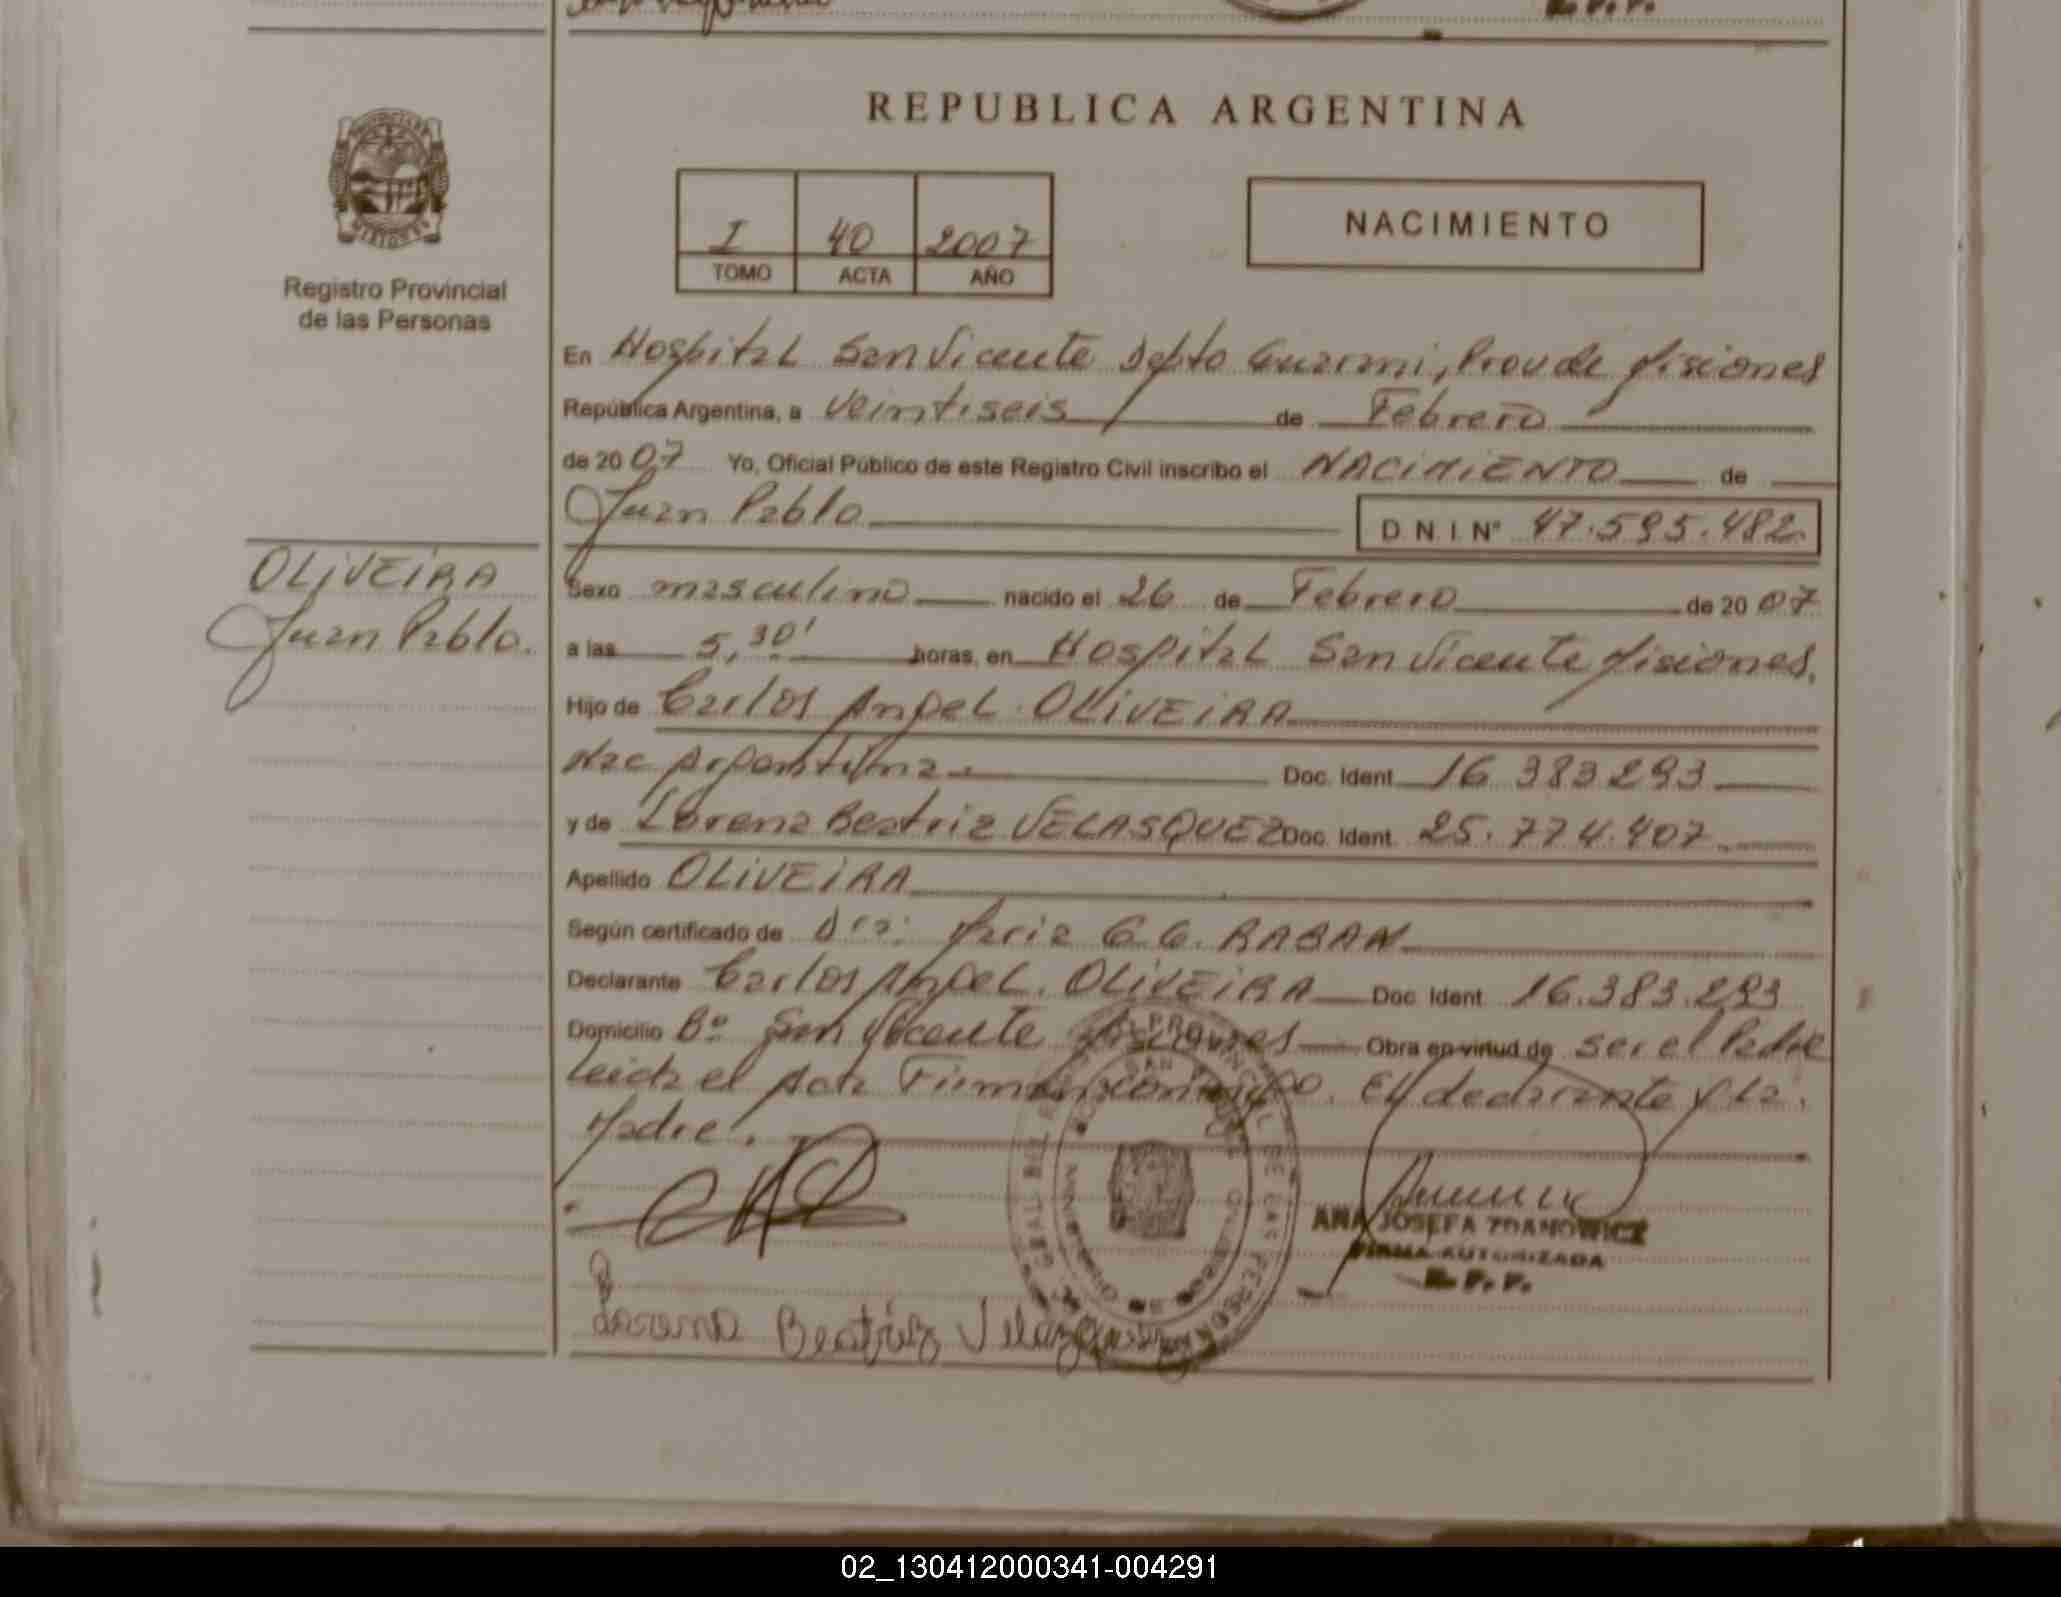 REPUBLICA ARGENTINA
Registro Provincial
de las Personas
I 40 2007
TOMO ACTA AÑO
NACIMIENTO
En Hospital San Vicente Depto Guarani, Prov de Misiones
República Argentina, a veintiseis de Febrero
de 2007 Yo, Oficial Público de este Registro Civil inscribo el NACIMIENTO de
Juan Pablo D. N. I. N° 47.595.482
OLIVEIRA
Juan Pablo.
Sexo masculino nacido el 26 de Febrero de 2007
a las 5,30' horas, en Hospital San Vicente Misiones,
Hijo de Carlos Angel OLIVEIRA
Nac Argentina Doc. Ident. 16 383 293
y de Lorena Beatriz VELASQUEZ Doc. Ident. 25.774.407
Apellido OLIVEIRA
Según certificado de Dra: Maria G.G.
Declarante Carlos Angel. OLIVEIRA Doc Ident. 16.383.293
Domicilio B° San Vicente Misiones Obra en virtud de ser el Padre
Leida el Acta Firman conmigo. El declarante y La
Madre.
ANA JOSEFA ZDANOWICZ
FIRMA AUTORIZADA
R. P. P.
Lorena Beatriz Velazquez
02_130412000341-004291